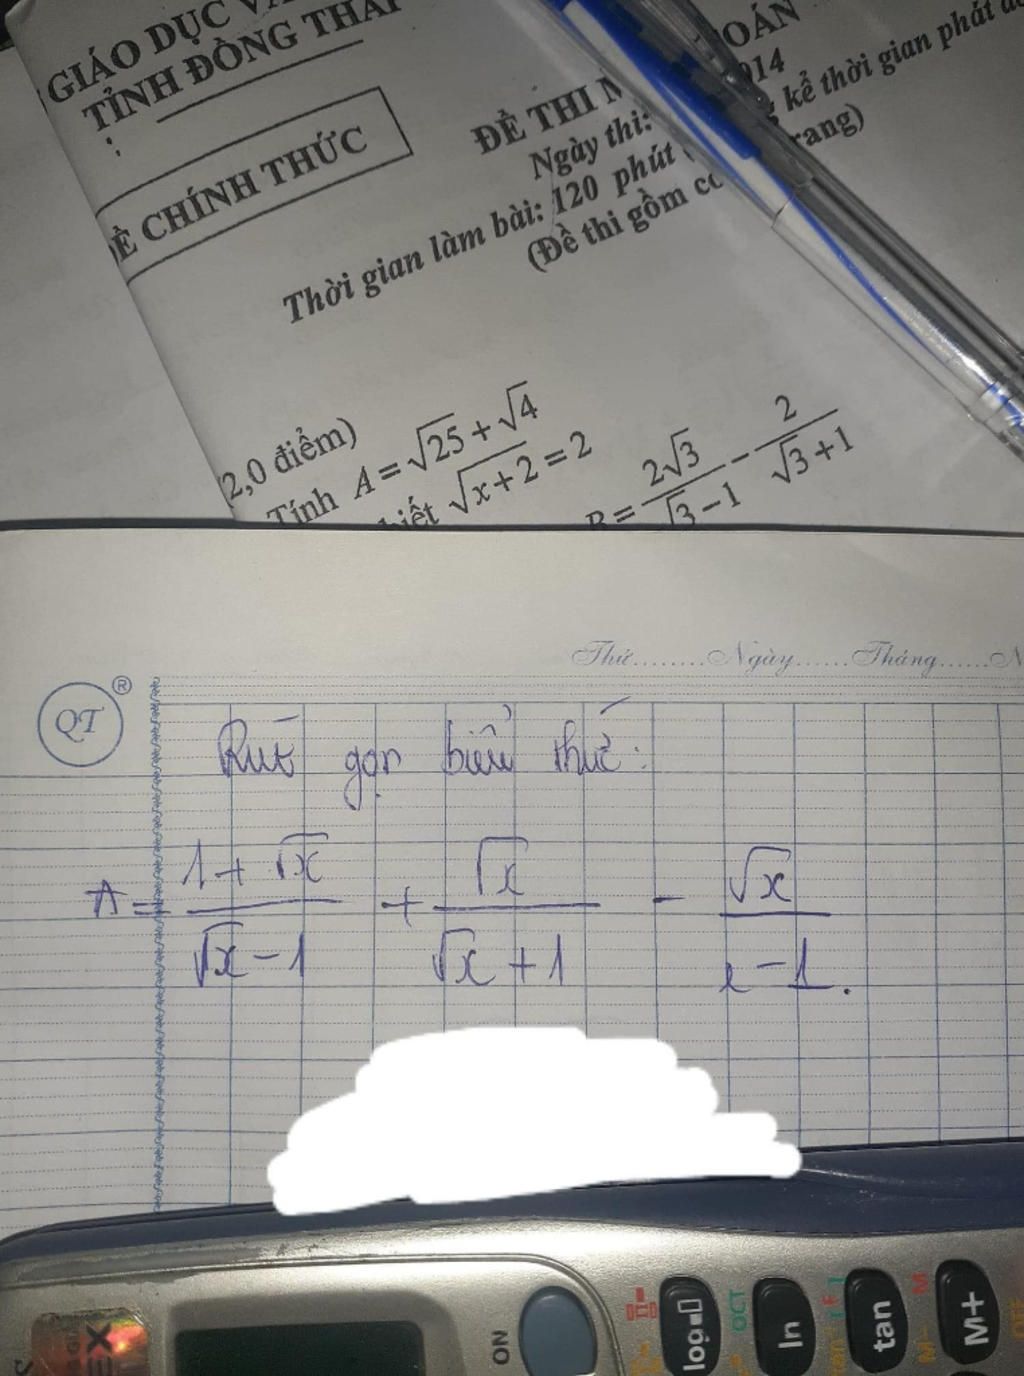 GIÁO DỤC VÀ
TỈNH ĐỒNG THÁP
CHÍNH THỨC
ĐỀ THI
OÁN
Ngày thi: 014
Thời gian làm bài: 120 phút kể thời gian phát
(Đề thi gồm có rang)
(2,0 điểm)
Tính A = √25 + √4
biết √(x+2) = 2
B = 2√3/(√3-1) - 2/(√3+1)
Thứ........Ngày......Tháng......N
QT ®
Rút gọn biểu thức:
A = (1+√x)/(√x-1) + √x/(√x+1) - √x/(x-1).
ON
log
OCT
ln
tan
M-
M
M+
EX